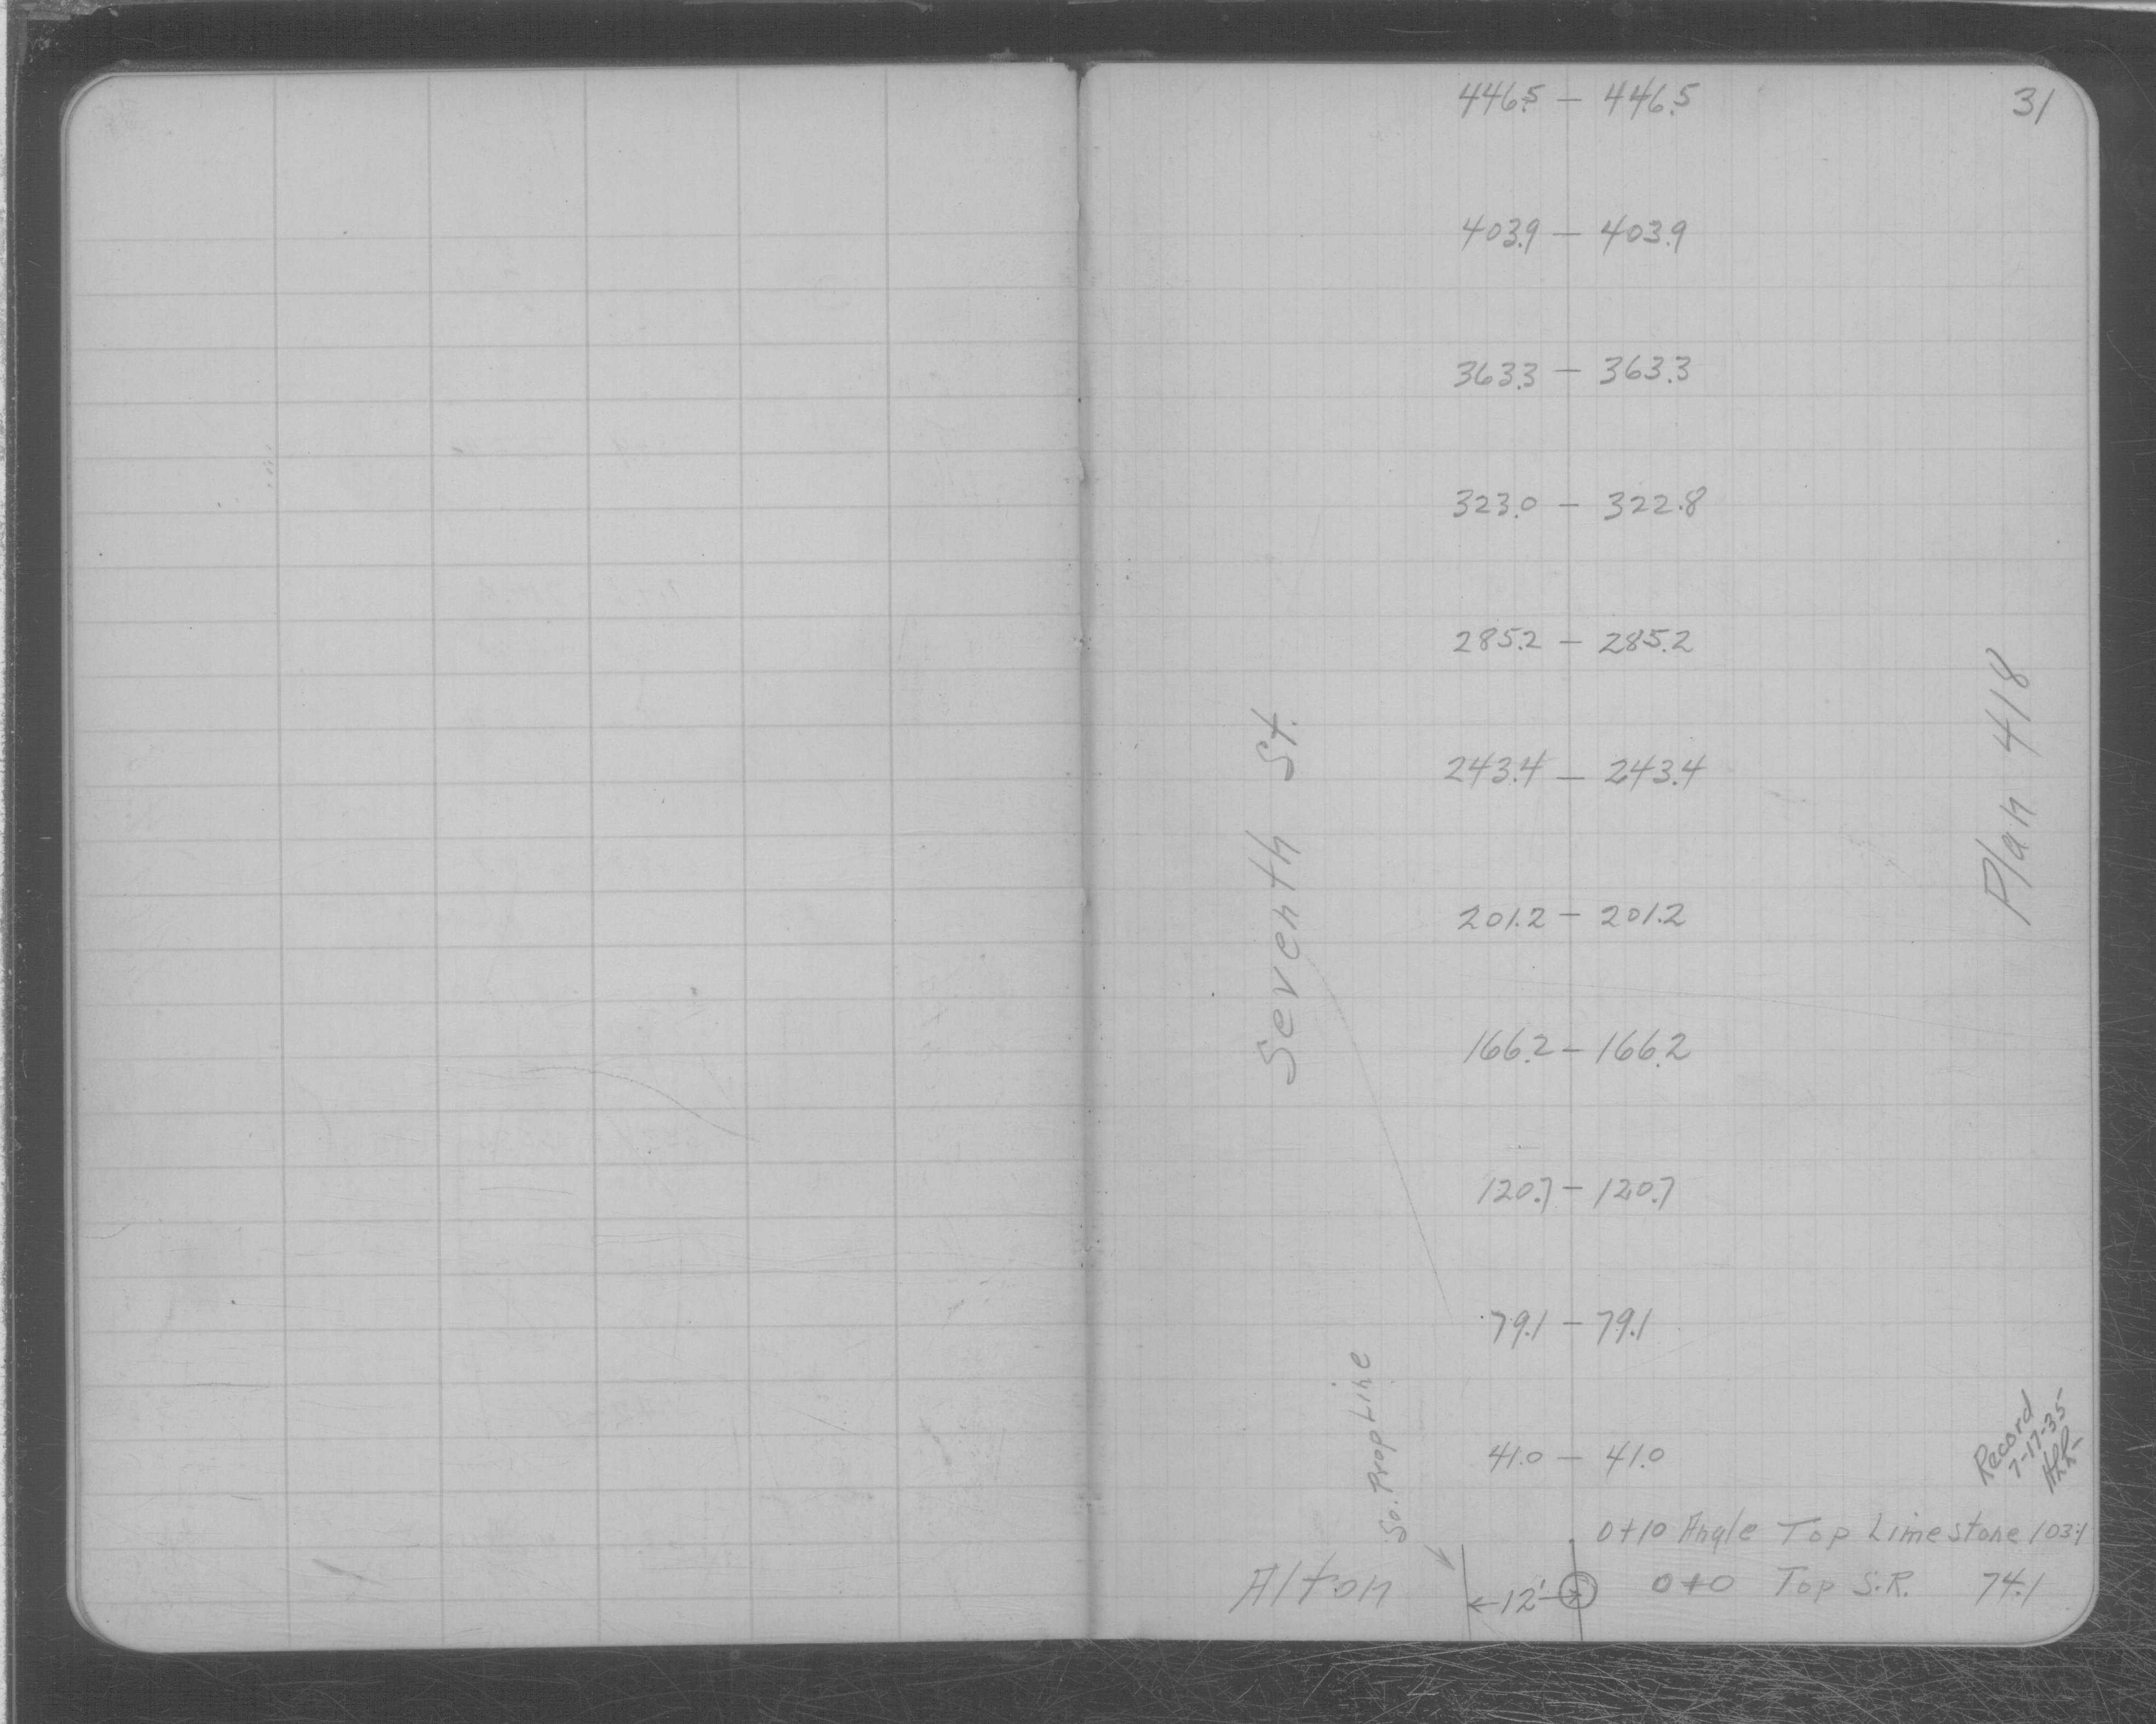 31
446.5 – 446.5
403.9 – 403.9
363.3 – 363.3
323.0 – 322.8
285.2 – 285.2
243.4 – 243.4
201.2 – 201.2
166.2 – 166.2
120.7 – 120.7
79.1 – 79.1
41.0 – 41.0
Seventh St.
Plan 418
So. Prop Line
Record
7-17-35
0+10 Angle Top Limestone 103.1
Alton
12'
0+0 Top S.R. 74.1